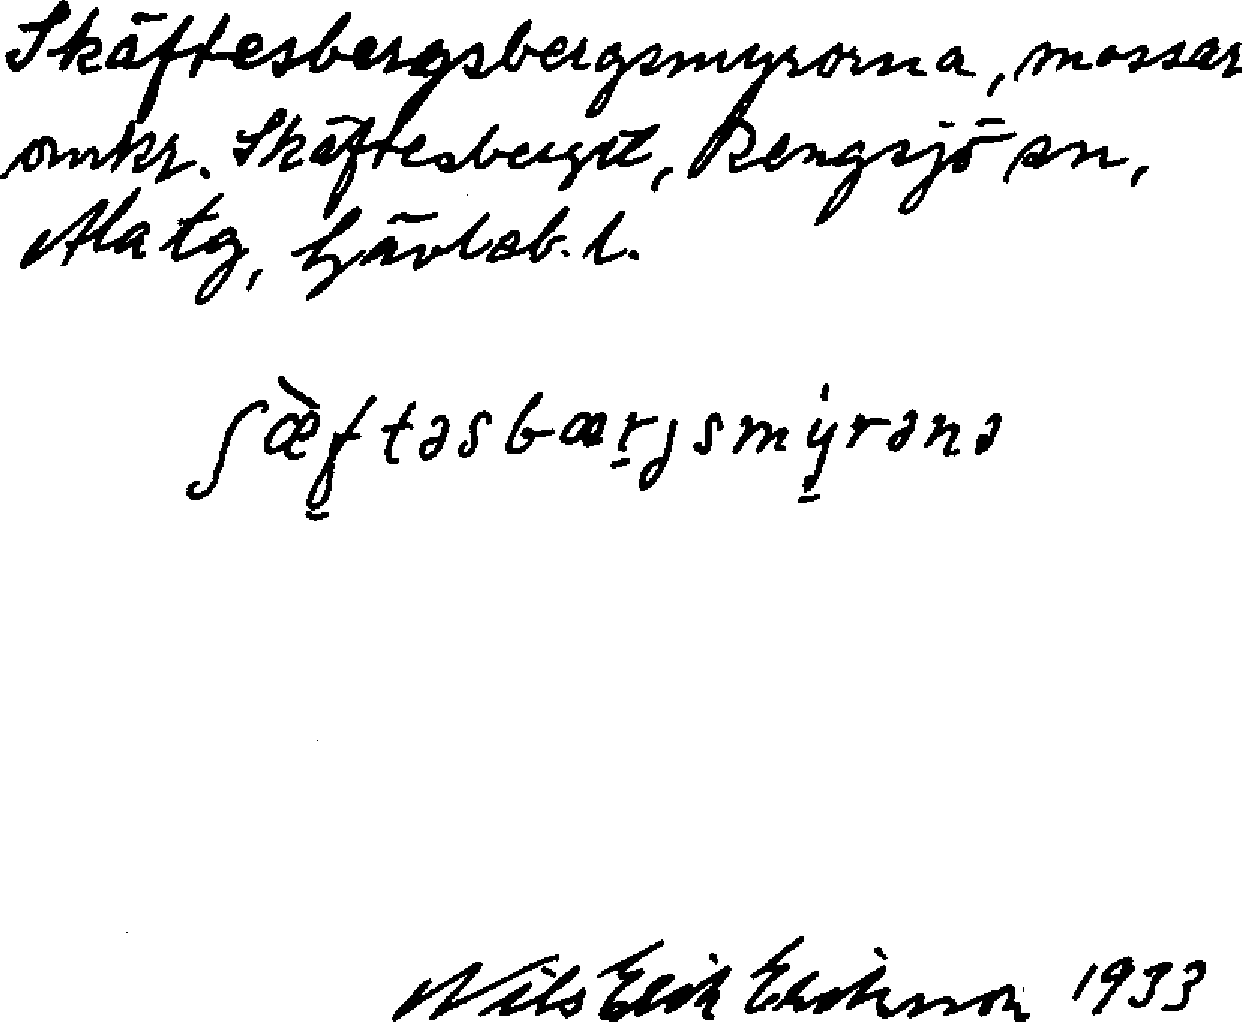 Skäftesbergsbergsmyrorna, mossar
omkr. Skäftesberget, Rengsjö sn,
Ala tg, Gävleb. l.
ʃæ̀f̠təsbær̠jsmy̠̍rənə
Nils Erik Eriksson 1933